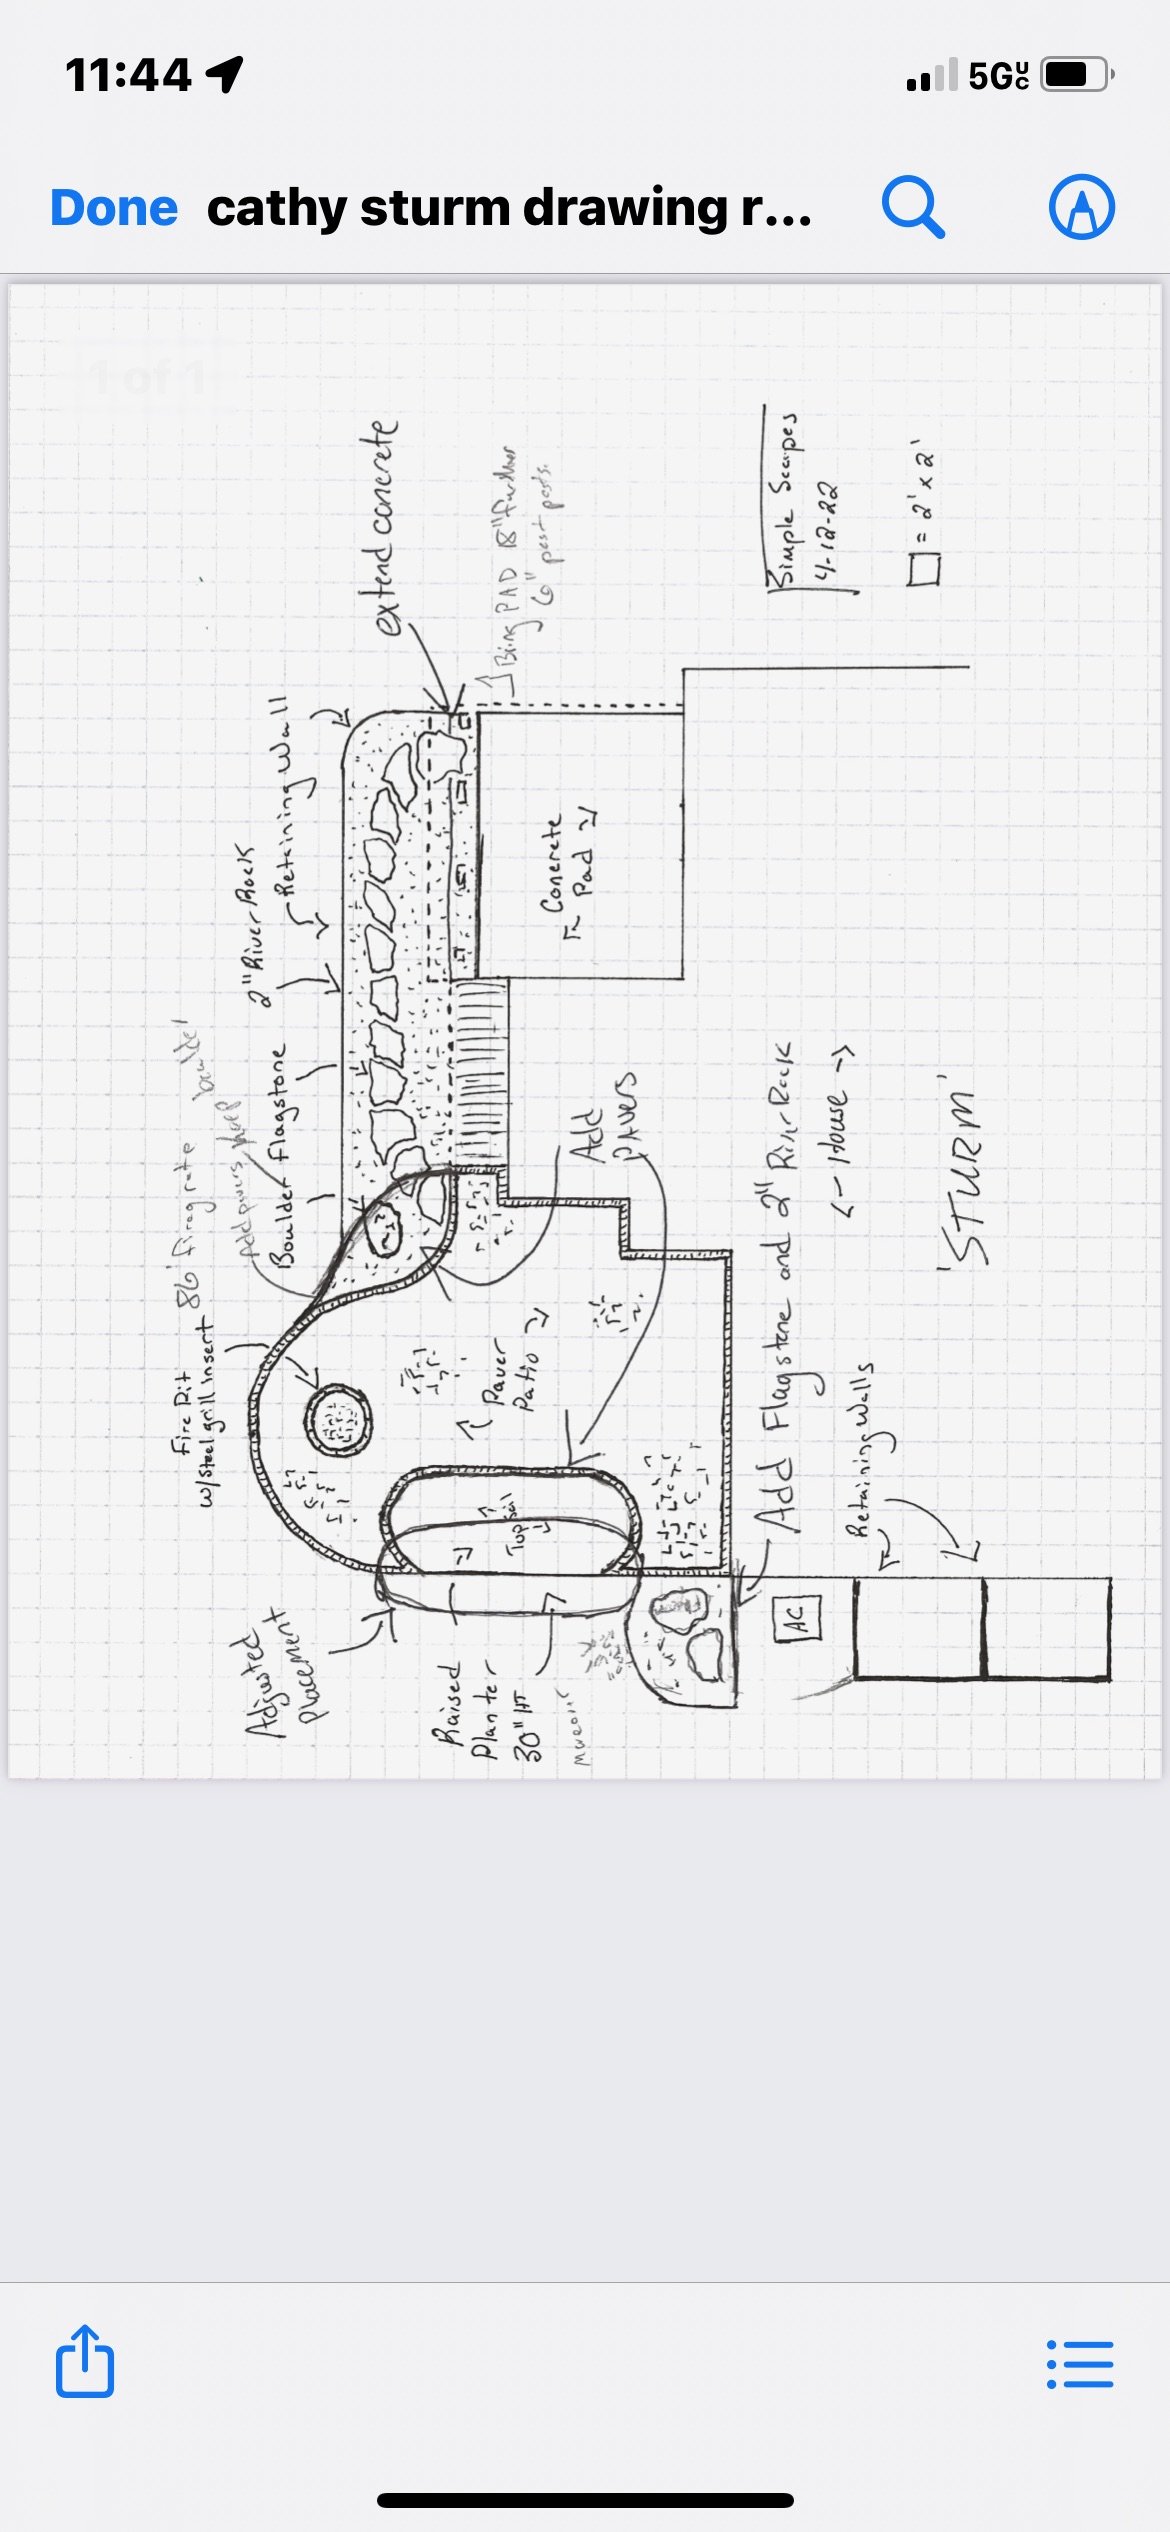 11:44
5G UC
Done cathy sturm drawing r...
1 of 1
extend concrete
Bring PAD 18" further
6" past posts.
Simple Scapes
4-12-22
= 2' x 2'
Retaining Wall
2" River Rock
Boulder Flagstone
86 fire grate
Add pavers keep
Fire Pit
w/steel grill insert
Concrete
Pad
Add
PAVERS
Paver
Patio
Top Soil
Adjusted
Placement
Raised
Planter
30" HT
Add Flagstone and 2" River Rock
Retaining Walls
AC
← House →
'STURM'